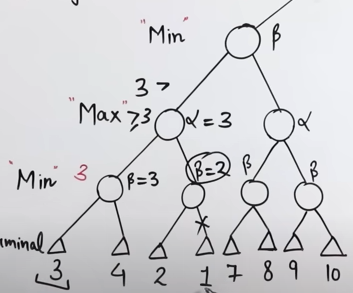 "Min" β
3 >
"Max" ≥3 α = 3 α
"Min" 3 β=3 β=2 β β
minal 3 4 2 1 7 8 9 10